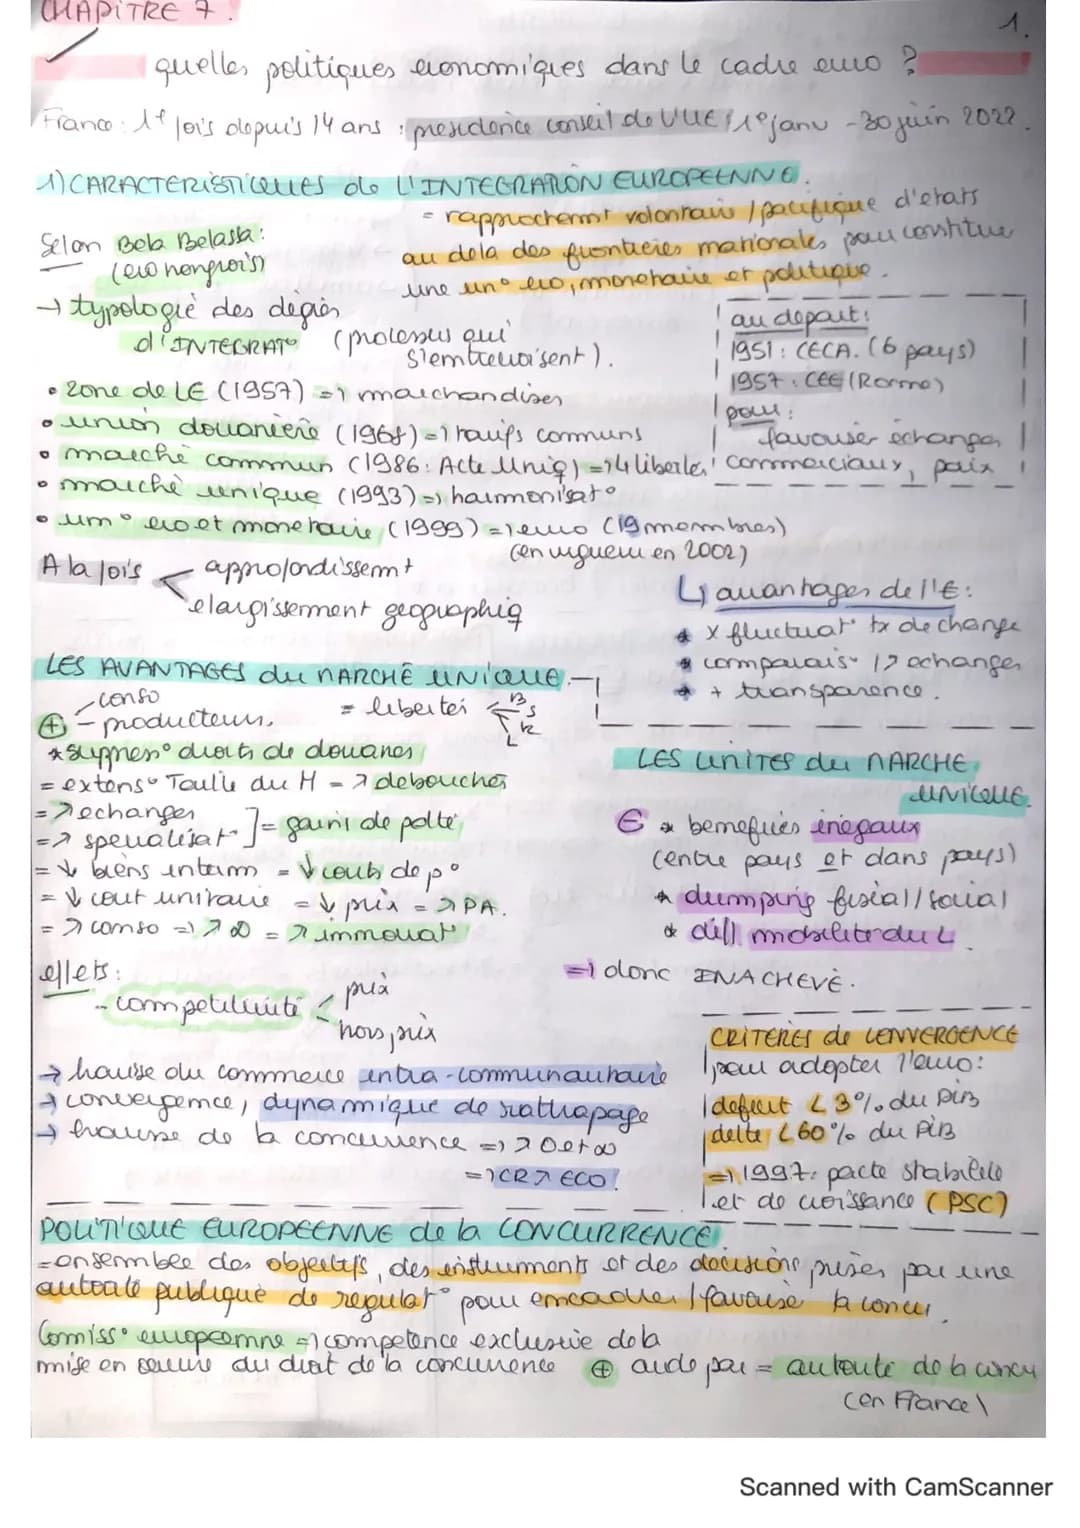 CHAPITRE 7.
1.
quelles politiques economiques dans le cadre euro ?
France : 1e fois depuis 14 ans : presidence conseil de l'UE 1e janv - 30 juin 2022.
1) CARACTERISTIQUES de L'INTEGRATION EUROPEENNE.
= rapprochemt volontaire / pacifique d'etats
au dela des frontieres nationales pour constituer
une un° eco, monetaire et politique.
Selon Bela Belassa :
(eco hongrois)
→ typologie des degrés
d'INTEGRAT° (processus qui
s'entrecroisent).
• zone de LE (1957) => marchandises
• union douanière (1968) => tarifs communs
• marché commun (1986 : Acte Uniq) => 4 libertés
• marché unique (1993) => harmonisat°
• un° eco et monetaire (1999) => euro (19 membres)
(en vigueur en 2002)
au départ :
1951 : CECA. (6 pays)
1957 : CEE (Rome)
pour :
favoriser échanges
commerciaux, paix
A la fois < approfondissemt
elargissement geographiq
↳ avantages de l'€ :
* x fluctuat° tx de change
* comparais° / ↗ echanges
* + transparence.
LES AVANTAGES du MARCHÉ UNIQUE.
⊕ - conso
- producteurs.
= libertés B
S
K
L
* suppress° droits de douanes
= extens° Taille du M = ↗ debouchés
= ↗ echanges
= ↗ specialisat° ] = gains de pdté
= ↓ biens interm = ↓ couts de p°
= ↓ cout unitaire = ↓ prix = ↗ PA.
= ↗ conso => ↗ D = ↗ innovat°
effets :
- competitivité < prix
hors prix
→ hausse du commerce intra-communautaire
→ convergence, dynamique de rattrapage
→ hausse de la concurrence => ↗ O et D
=> CR ↗ ECO !
LES LIMITES du MARCHE
UNIQUE.
€ * benefices inégaux
(entre pays et dans pays)
* dumping fiscal / social
* diff mobilité du L.
=> donc INACHEVÉ.
CRITERES de CONVERGENCE
pour adopter l'euro :
deficit < 3% du PIB
dette < 60% du PIB
=> 1997 : pacte stabilité
et de croissance (PSC)
POLITIQUE EUROPEENNE de la CONCURRENCE
= ensemble des objectifs, des instruments et des decisions prises par une
autorité publique de regulat° pour encadrer / favorise la concu.
Commiss° europeenne => competence exclusive de la
mise en oeuvre du droit de la concurrence ⊕ aide par = autorité de la concu
(en France)
Scanned with CamScanner